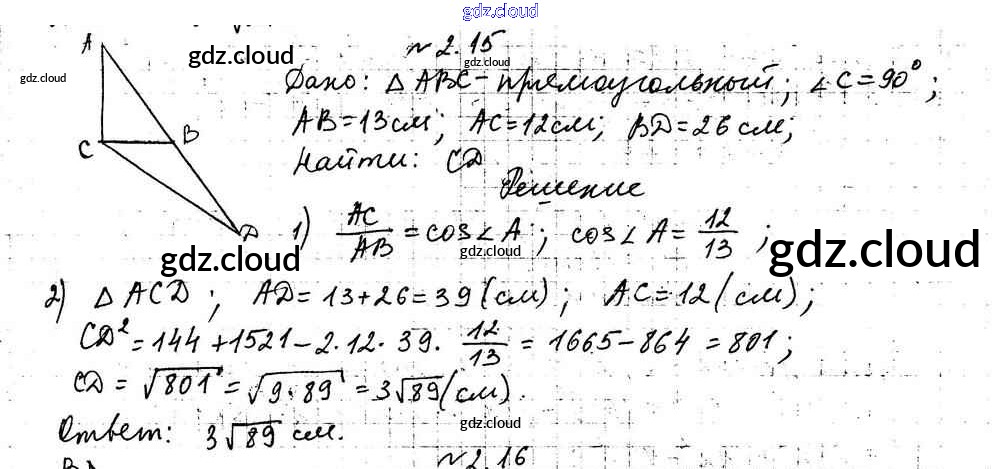 gdz.cloud
№2.15
gdz.cloud
gdz.cloud
gdz.cloud
A
C
B
D
Дано: △ABC - прямоугольный; ∠C=90°;
AB=13см; AC=12см; BD=26см;
Найти: CD
Решение
1) AC/AB = cos∠A; cos∠A = 12/13;
gdz.cloud
gdz.cloud
gdz.cloud
2) △ACD; AD=13+26=39(см); AC=12(см);
CD²=144+1521-2·12·39·12/13=1665-864=801;
CD=√801=√9·89=3√89(см).
gdz.cloud
gdz.cloud
Ответ: 3√89 см.
gdz.cloud
№2.16